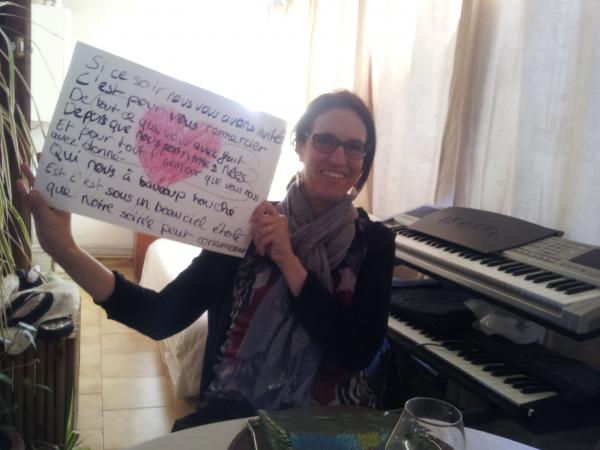 Si ce soir nous vous avons invité
C'est pour vous remercier
De tout ce que vous avez fait
Depuis que nous sommes nées
Et pour tout l'amour que vous nous
avez donné
Qui nous à beaucoup touché
Est c'est sous un beau ciel étoilé
que notre soirée peut commencer